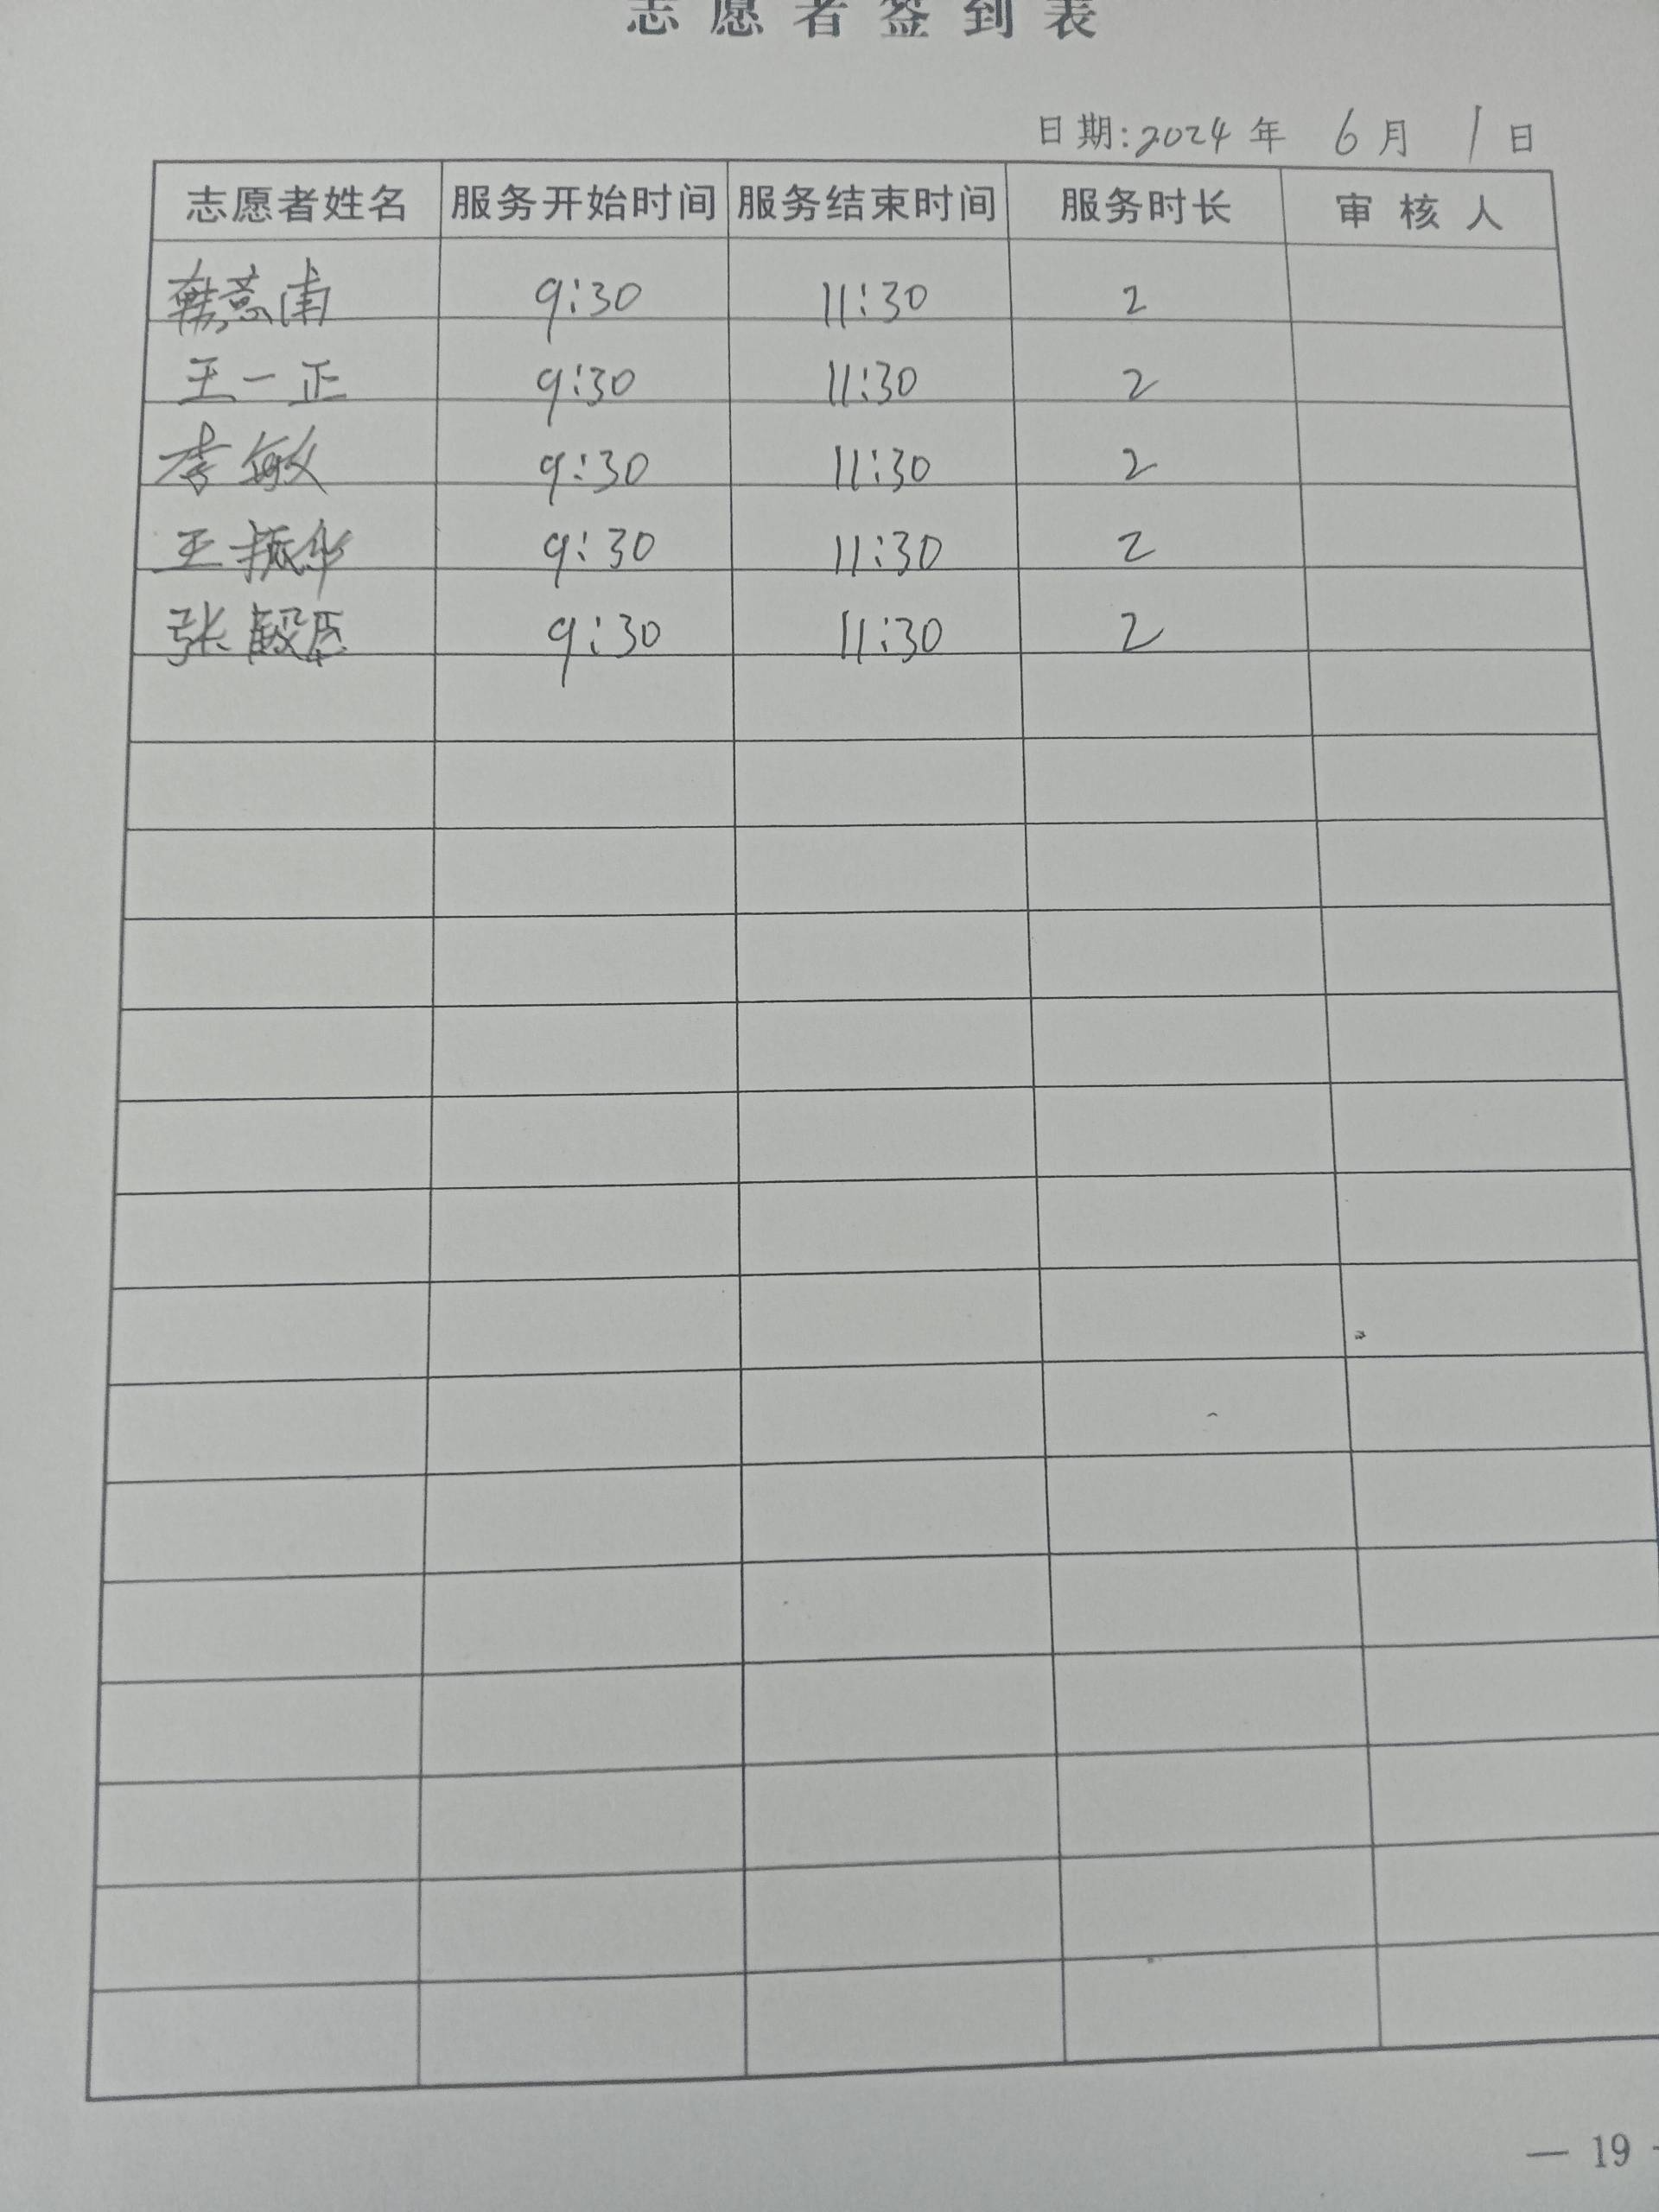 志愿者签到表
日期:2024年 6月 1日
志愿者姓名 服务开始时间 服务结束时间 服务时长 审核人
9:30 11:30 2
王一正 9:30 11:30 2
李敏 9:30 11:30 2
王振华 9:30 11:30 2
张毅 9:30 11:30 2
— 19